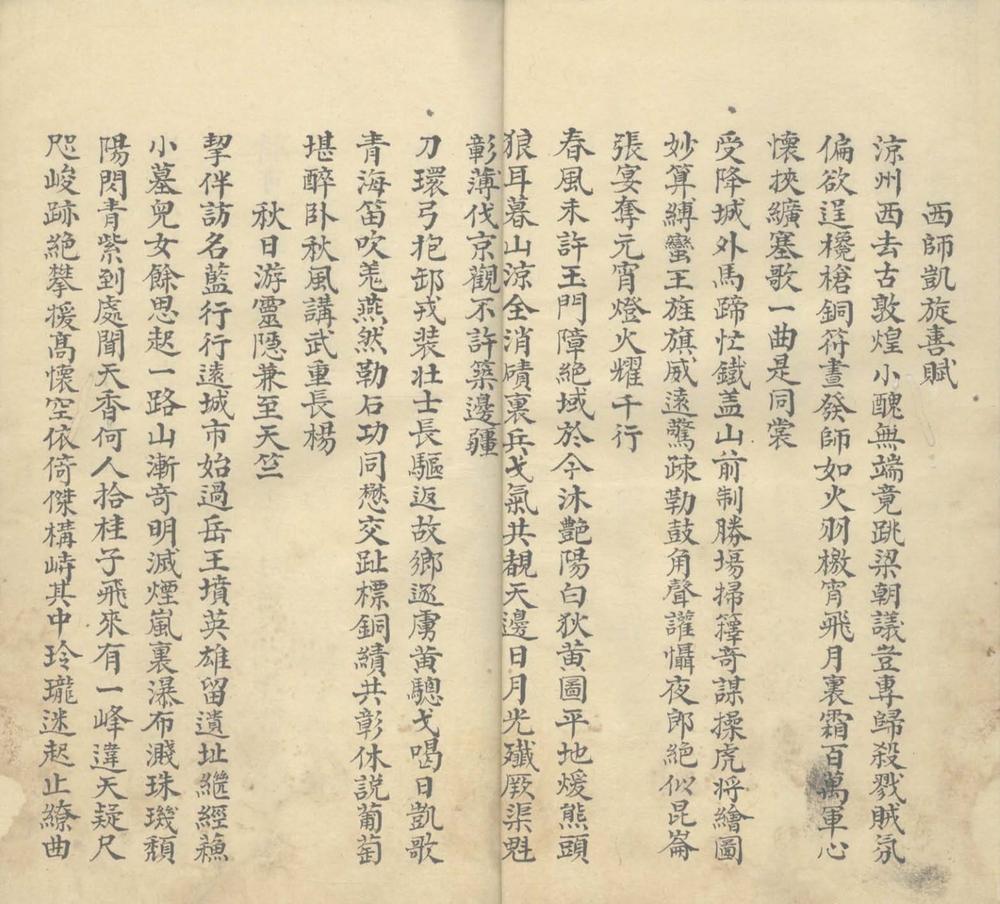 西師凱旋喜賦
涼州西去古敦煌小醜無端竟跳梁朝議豈專歸殺戮賊氛
偏欲逞欃槍銅符晝發師如火羽檄宵飛月裏霜百萬軍心
懷挾纊塞歌一曲是同裳
受降城外馬蹄忙鐵盖山前制勝場掃籜奇謀操虎將繪圖
妙算縛蠻王旌旗威遠驚疎勒鼓角聲讙懾夜郎絕似昆崙
張宴奪元宵燈火耀千行
春風未許玉門障絕域於今沐艷陽白狄黃圖平地煖熊頭
狼耳暮山涼全消磧裏兵戈氣共覩天邊日月光殲厥渠魁
彰薄伐京觀不許築邊疆
刀環弓抱卸戎装壮士長驅返故鄉逐虜黃驄戈喝日凱歌
青海笛吹羗燕然勒石功同懋交趾標銅績共彰休説葡萄
堪醉卧秋風講武重長楊
秋日游靈隠兼至天竺
挈伴訪名藍行行遠城市始過岳王墳英雄留遺址繼經蘓
小墓兒女餘思起一路山漸奇明滅煙嵐裏瀑布濺珠璣頹
陽閃青紫到處聞天香何人拾桂子飛來有一峰違天疑尺
咫峻跡絕攀援髙懷空依倚傑構峙其中玲瓏迷起止繚曲